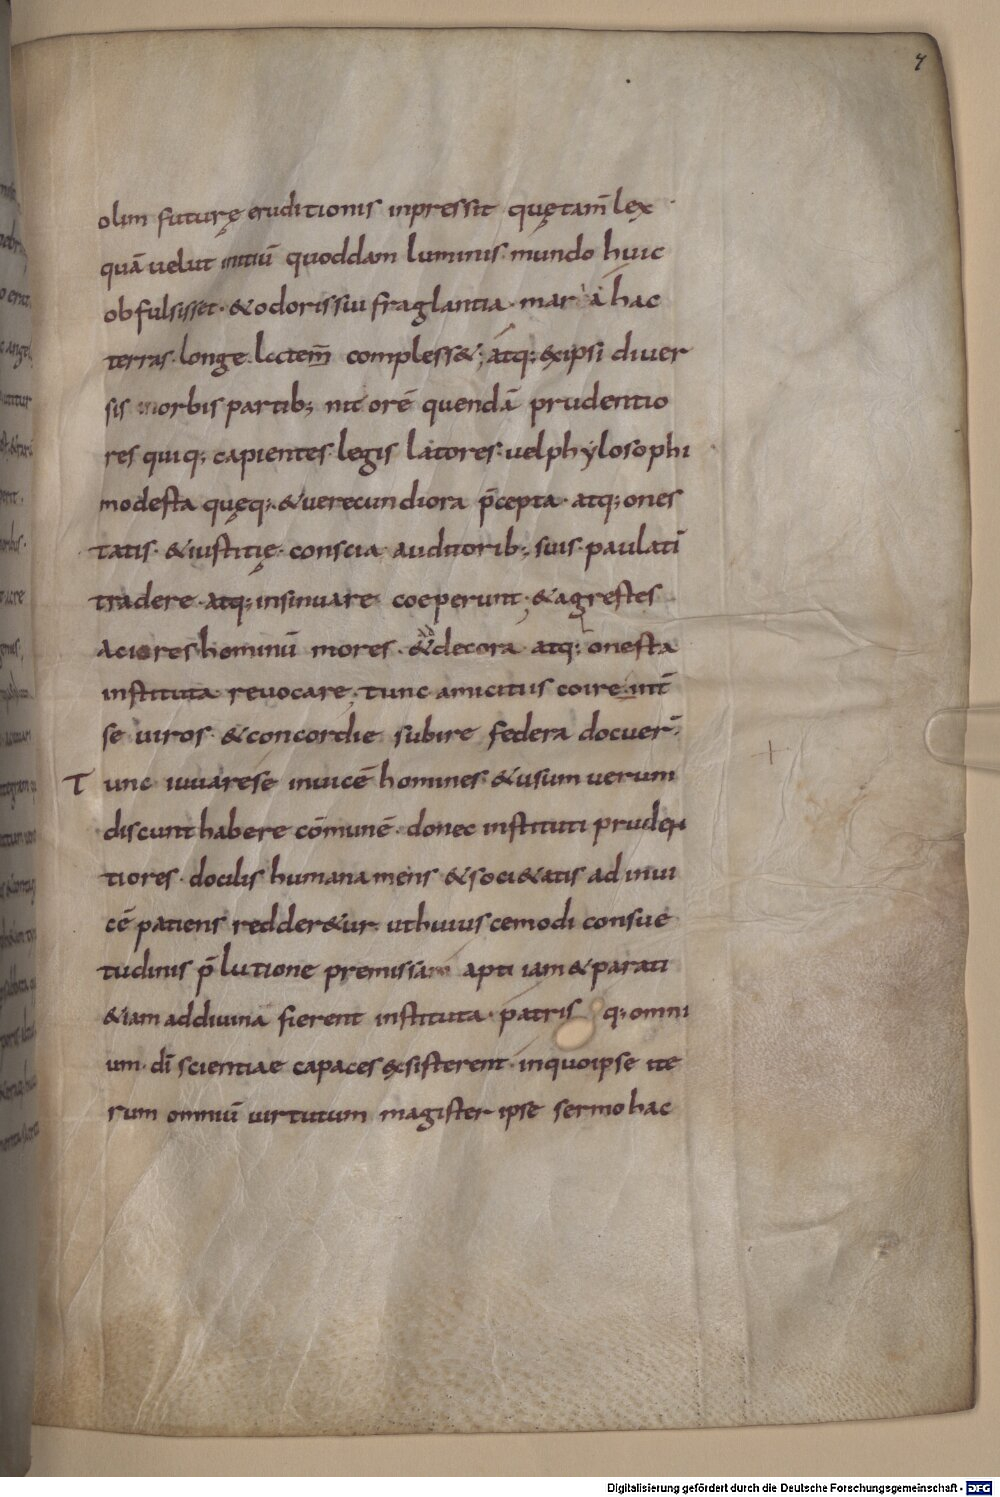 7
olim futurę eruditionis inpressit quętam̄ lex
quā uelut initiū quoddam luminis. mundo huic
obfulsisset. & odorissiu fraglantia. mar a hac
terras longe. lectem̄ compless&; atq; ęipsi diuer
sis morbis partib; nit orē quendā prudentio
res quiq; capientes legis latores. uel phylosophi
modesta quęq; & uerecundiora p̄cepta. atq; ones
tatis. & iustitię. conscia auditorib; suis paulatī
tradere. atq; insinuare coeperunt; & agrestes
aciores hominū mores. & decora atq; onesta
instituta reuocare; tunc amicitiis coire int̄
se uiros. & concordie subire federa docuer̄.
Tunc iuuarese inuicē homines. & usum uerum
discunt habere cōmunē. donec instituti pruden
tiores. docilis humana mens & soci&atis ad inui
cē patiens redder&ur. ut huiuscemodi consue
tudinis p̄lutione premissam apti iam & parati
& iam addiuina fierent instituta. patris q; omni
um. dī scientiae capaces exsisterent. inquo ipse ite
rum omniū uirtutum magister ipse sermo hac
Digitalisierung gefördert durch die Deutsche Forschungsgemeinschaft - DFG